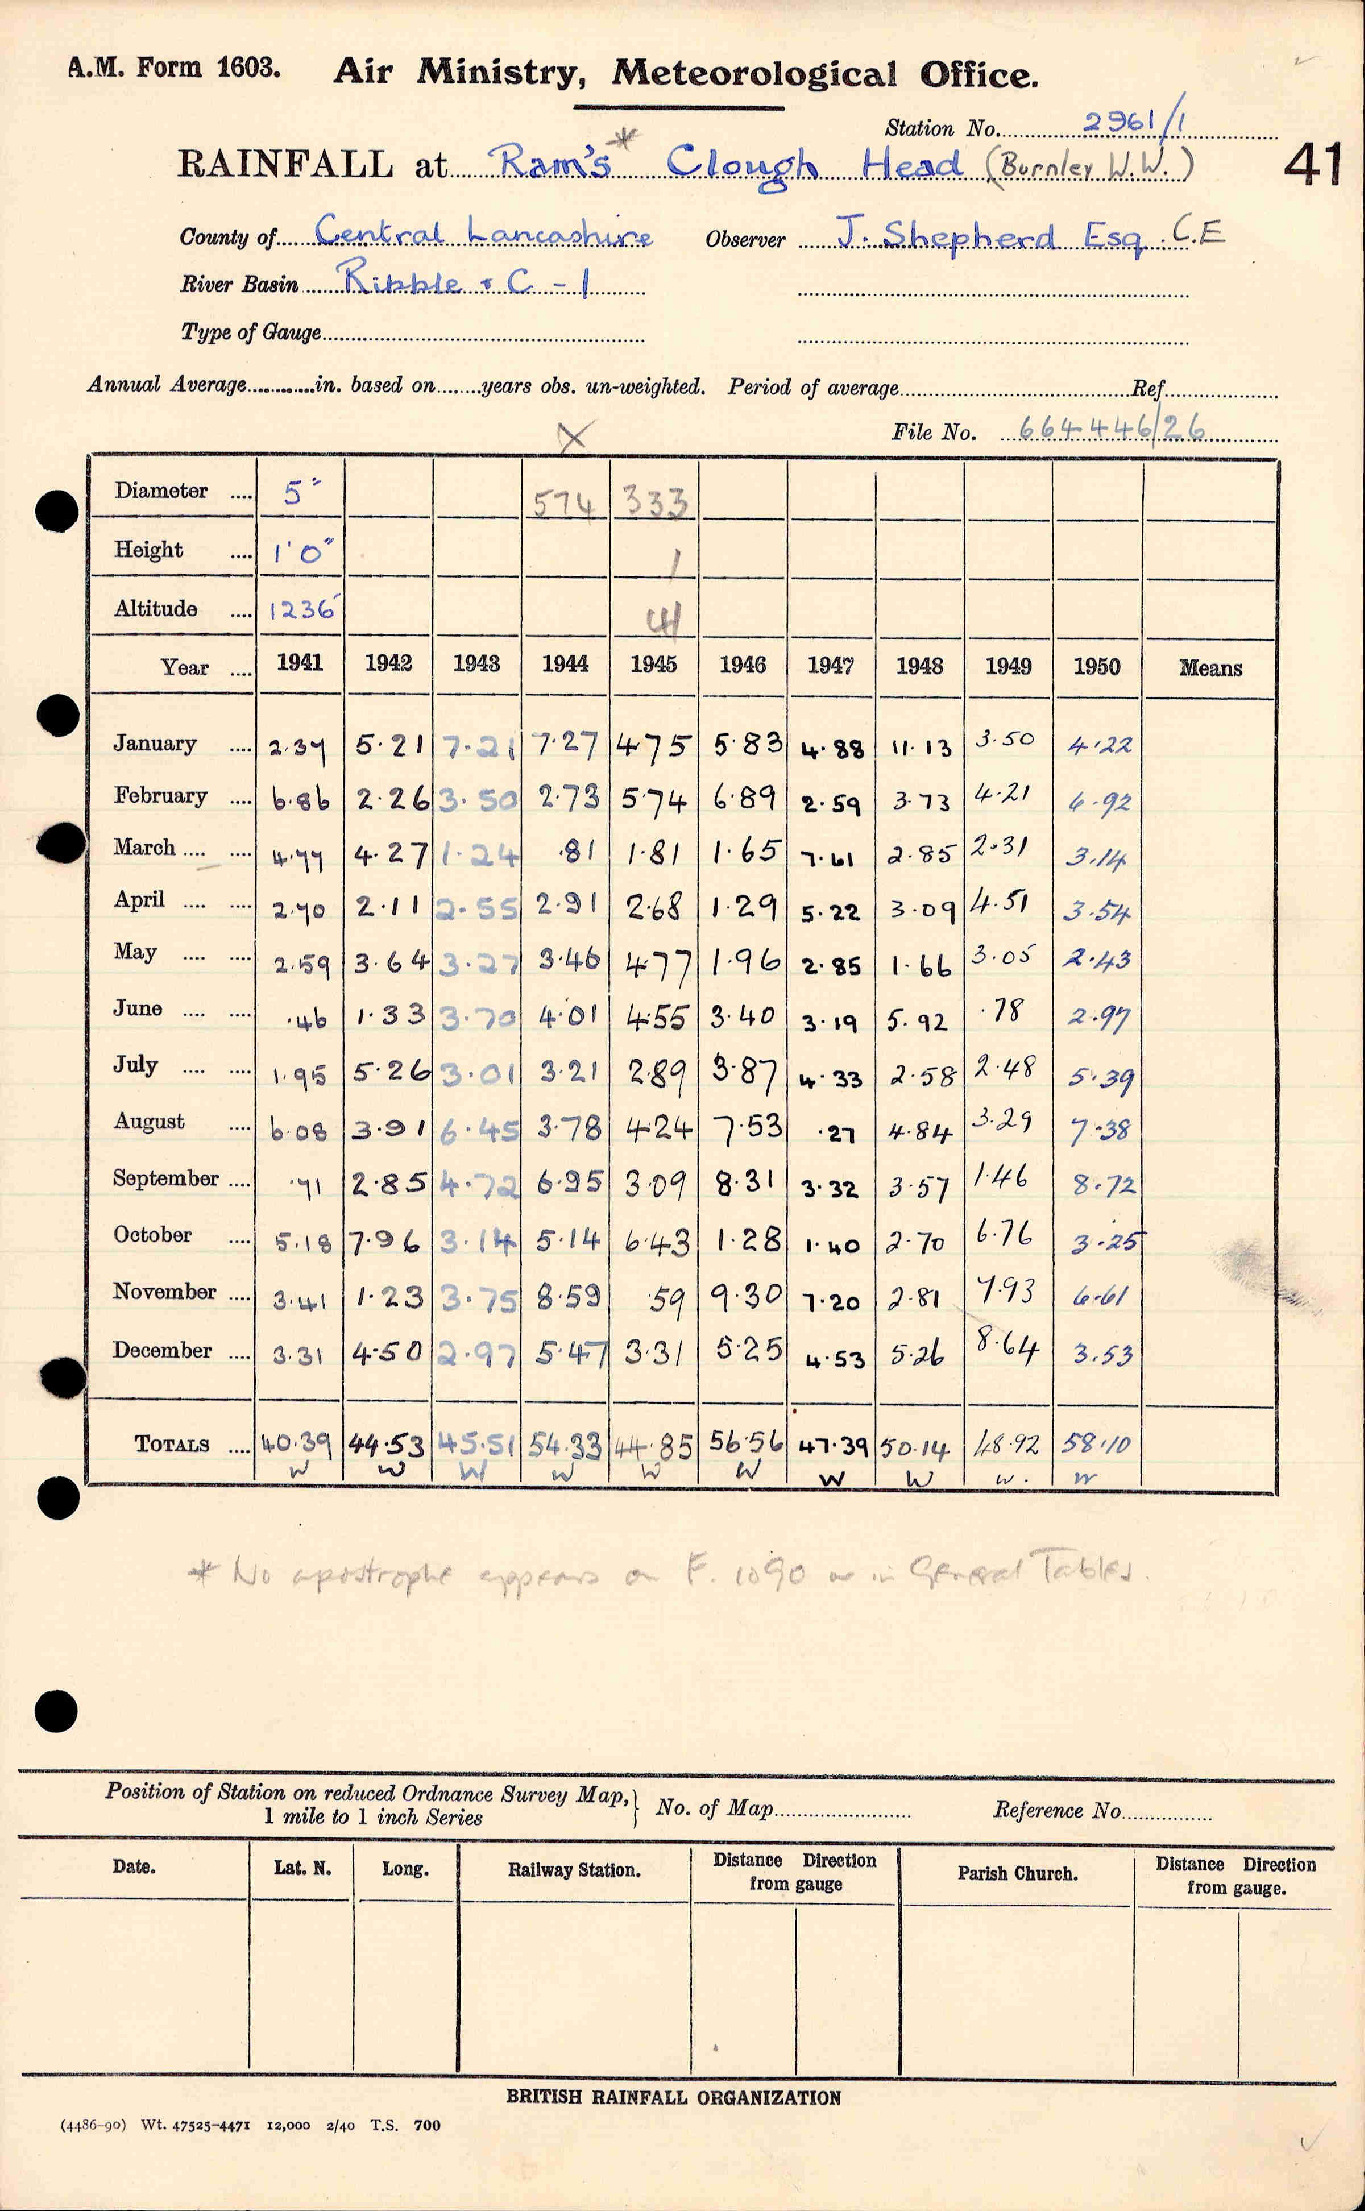 A.M. Form 1603. Air Ministry, Meteorological Office.
Station No. 2961/1
RAINFALL at Ram's* Clough Head (Burnley W.W.) 41
County of Central Lancashire Observer J. Shepherd Esq. C.E
River Basin Ribble + C - 1
Type of Gauge
Annual Average in. based on years obs. un-weighted. Period of average Ref.
File No. 664446/26
X
Diameter 5" 574 333
Height 1'0" 1
Altitude 1236' 41
Year 1941 1942 1943 1944 1945 1946 1947 1948 1949 1950 Means
January 2.37 5.21 7.21 7.27 4.75 5.83 4.88 11.13 3.50 4.22
February 6.86 2.26 3.50 2.73 5.74 6.89 2.59 3.73 4.21 6.92
March 4.77 4.27 1.24 .81 1.81 1.65 7.61 2.85 2.31 3.14
April 2.70 2.11 2.55 2.91 2.68 1.29 5.22 3.09 4.51 3.54
May 2.59 3.64 3.27 3.46 4.77 1.96 2.85 1.66 3.05 2.43
June .46 1.33 3.70 4.01 4.55 3.40 3.19 5.92 .78 2.97
July 1.95 5.26 3.01 3.21 2.89 3.87 4.33 2.58 2.48 5.39
August 6.08 3.91 6.45 3.78 4.24 7.53 .27 4.84 3.29 7.38
September .71 2.85 4.72 6.95 3.09 8.31 3.32 3.57 1.46 8.72
October 5.18 7.96 3.14 5.14 6.43 1.28 1.40 2.70 6.76 3.25
November 3.41 1.23 3.75 8.59 .59 9.30 7.20 2.81 7.93 6.61
December 3.31 4.50 2.97 5.47 3.31 5.25 4.53 5.26 8.64 3.53
TOTALS 40.39 44.53 45.51 54.33 44.85 56.56 47.39 50.14 48.92 58.10
W W W W W W W W W. W
* No apostrophe appears on F. 1090 or in General Tables.
Position of Station on reduced Ordnance Survey Map, 1 mile to 1 inch Series No. of Map Reference No.
Date. Lat. N. Long. Railway Station. Distance Direction from gauge Parish Church. Distance Direction from gauge.
BRITISH RAINFALL ORGANIZATION
(4486-90) Wt. 47525-4471 12,000 2/40 T.S. 700